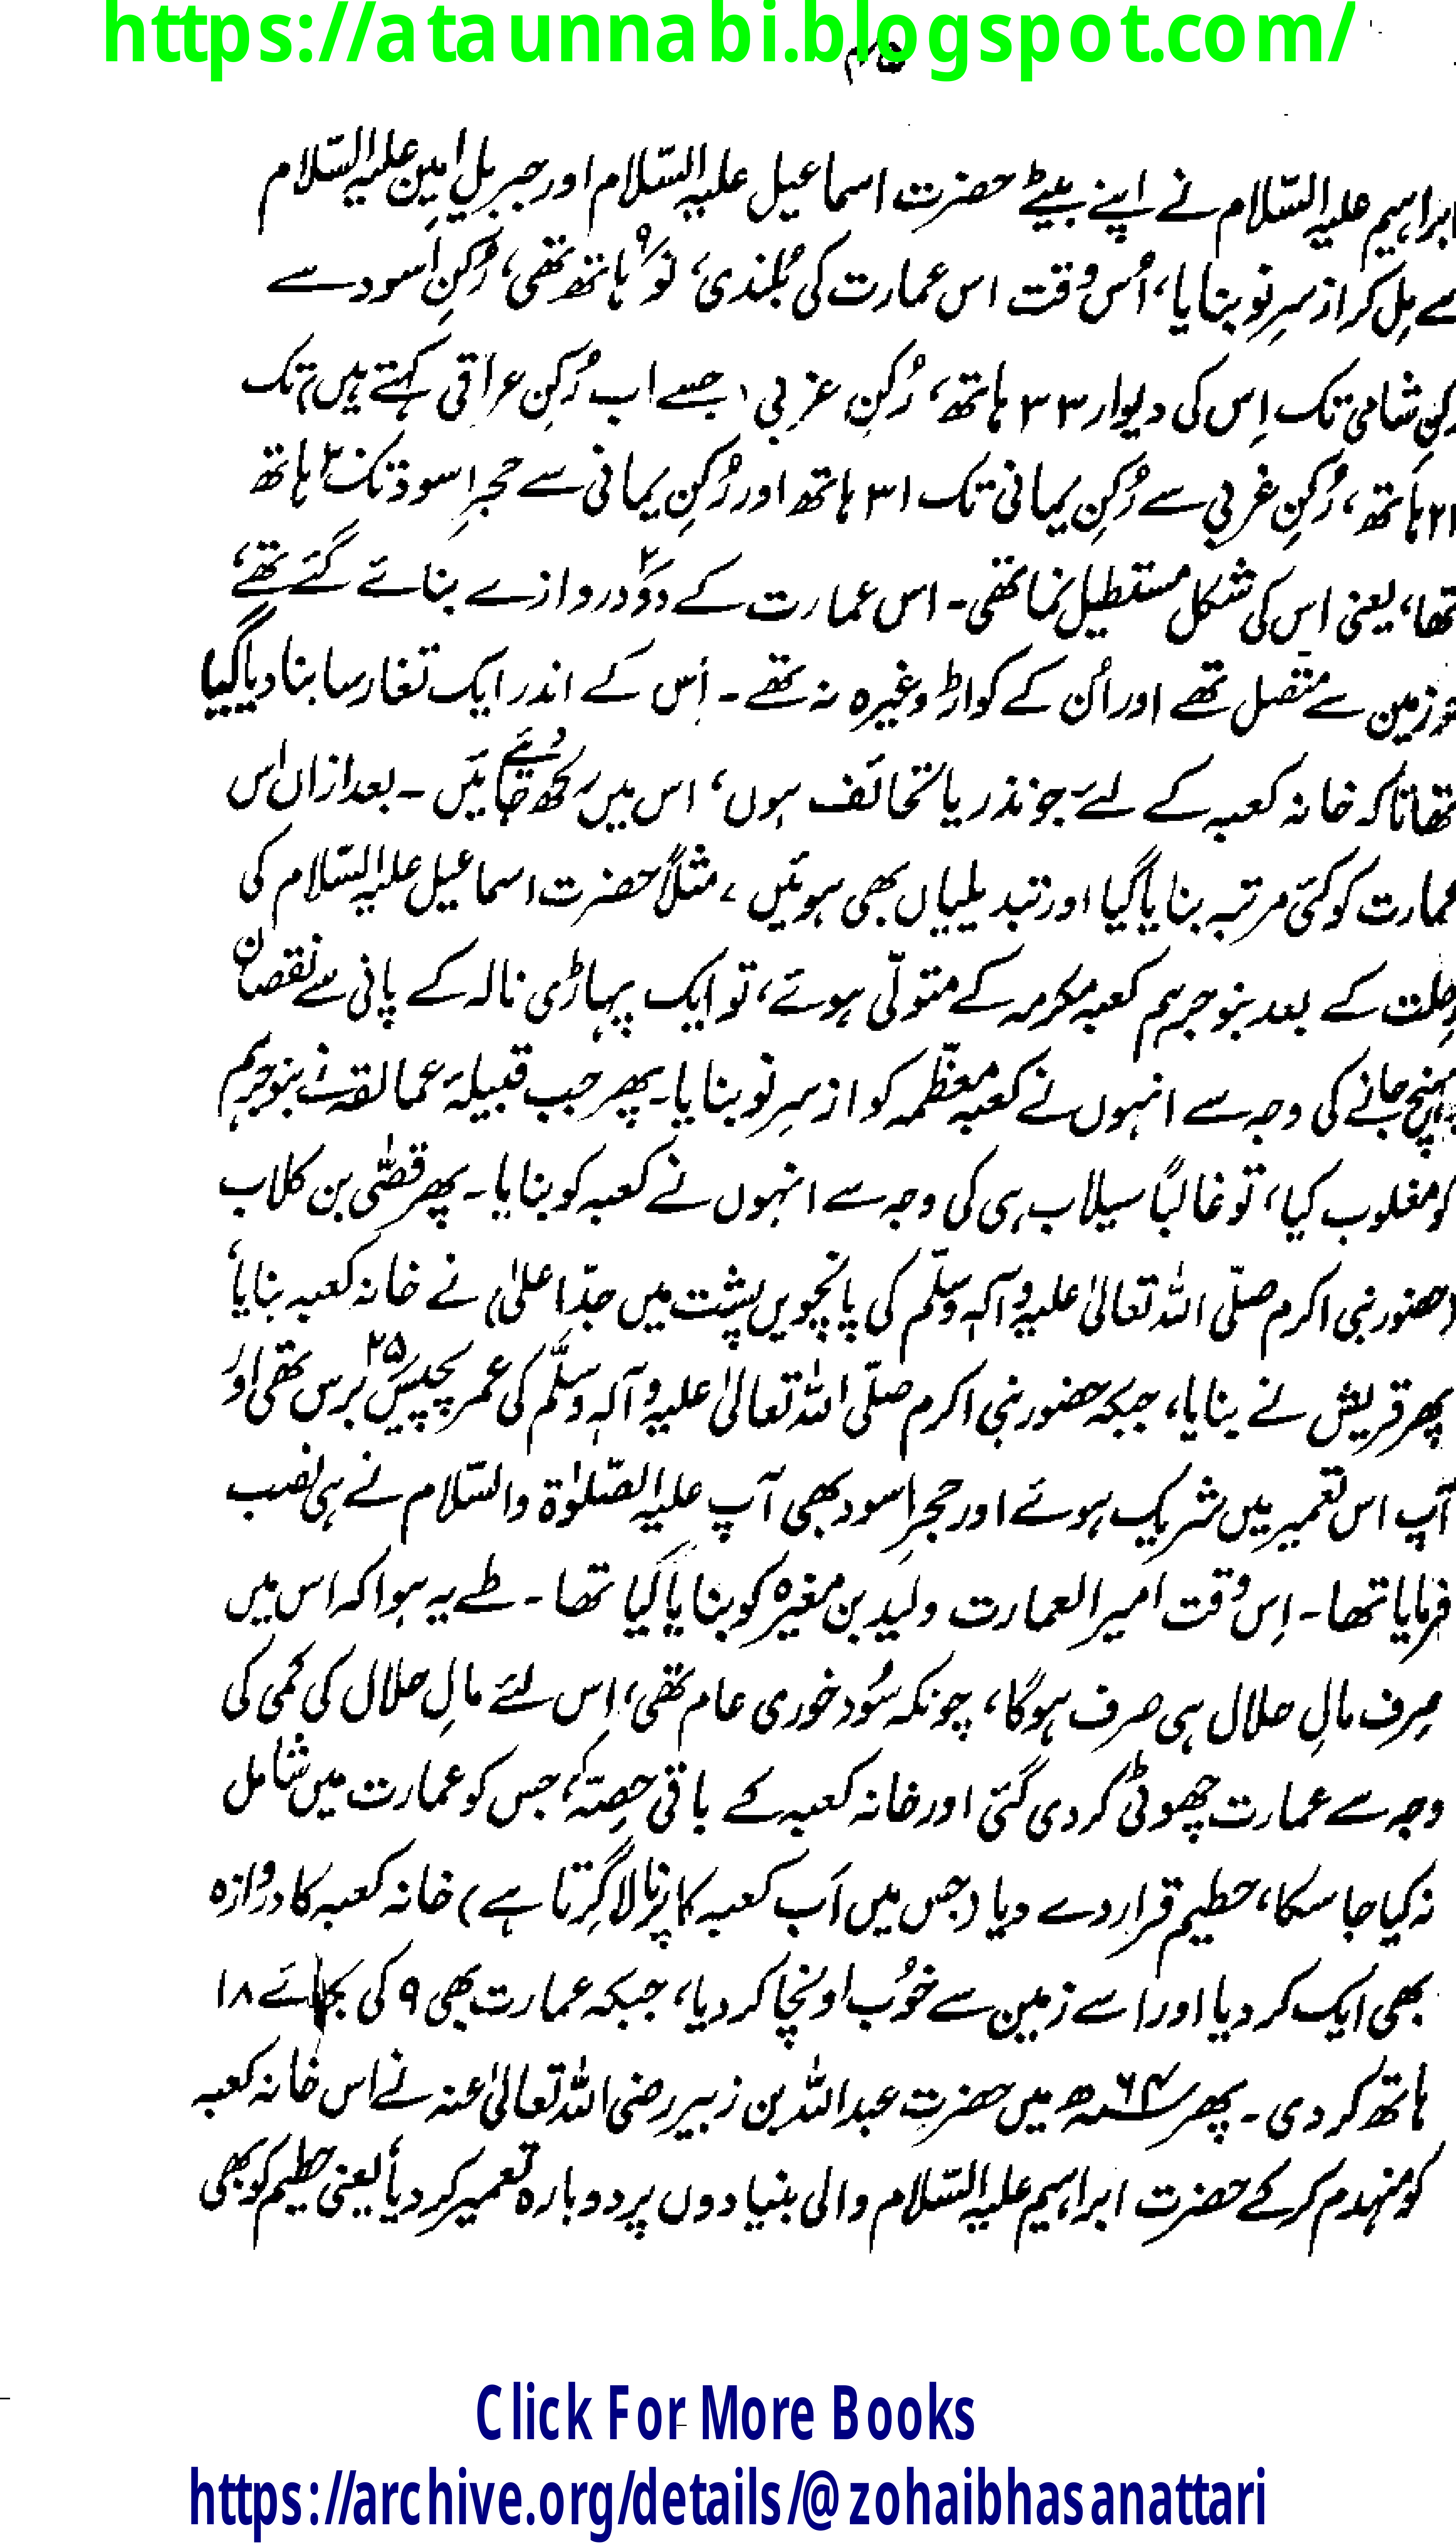 https://ataunnabi.blogspot.com/
ابراہیم علیہ السّلام نے اپنے بیٹے حضرت اسماعیل علیہ السّلام اور جبریلِ امین علیہ السّلام
سے مِل کر از سرِ نو بنایا، اُس وقت اس عمارت کی بُلندی، نَو ۹ ہاتھ تھی، رُکنِ اسود سے
رکنِ شامی تک اِس کی دیوار ۳۳ ہاتھ، رُکنِ غربی، جسے اب رُکنِ عراقی کہتے ہیں، تک
ہاتھ، رُکنِ غربی سے رُکنِ یمانی تک ۳۱ ہاتھ اور رُکنِ یمانی سے حجرِ اسود تک ہاتھ
تھا، یعنی اس کی شکل مستطیل نما تھی۔ اس عمارت کے دَو ۲ دروازے بنائے گئے تھے،
جو زمین سے متصل تھے اور اُن کے کواڑ وغیرہ نہ تھے۔ اِس کے اندر ایک تغار سا بنا دیا گیا
تھا تاکہ خانہ کعبہ کے لئے جو نذر یا تحائف ہوں، اس میں رکھ دئیے جائیں۔ بعد ازاں اس
عمارت کو کئی مرتبہ بنایا گیا اور تبدیلیاں بھی ہوئیں، مثلاً حضرت اسماعیل علیہ السّلام کی
رحلت کے بعد بنو جرہم کعبہ مکرمہ کے متولّی ہوئے، تو ایک پہاڑی نالہ کے پانی سے نقصان
پہنچ جانے کی وجہ سے انہوں نے کعبہ معظّمہ کو از سرِ نو بنایا۔ پھر جب قبیلۂ عمالقہ نے بنو جرہم
کو مغلوب کیا، تو غالباً سیلاب ہی کی وجہ سے انہوں نے کعبہ کو بنایا۔ پھر قصّٰی بن کلاب
(حضور نبی اکرم صلّی اللہ تعالیٰ علیہ وآلہٖ وسلّم کی پانچویں پشت میں جدّ اعلیٰ) نے خانہ کعبہ بنایا،
پھر قریش نے بنایا، جبکہ حضور نبی اکرم صلّی اللہ تعالیٰ علیہ وآلہٖ وسلّم کی عمر پچیس ۲۵ برس تھی اور
آپ اس تعمیر میں شریک ہوئے اور حجرِ اسود بھی آپ علیہ الصّلوٰۃ والسّلام نے ہی نصب
فرمایا تھا۔ اِس وقت امیر العمارت ولید بن مغیرہ کو بنایا گیا تھا۔ طے یہ ہوا کہ اس میں
صِرف مالِ حلال ہی صرف ہوگا، چونکہ سُود خوری عام تھی، اِس لئے مالِ حلال کی کمی کی
وجہ سے عمارت چھوٹی کر دی گئی اور خانہ کعبہ کے باقی حصِہّ کو، جس کو عمارت میں شامل
نہ کیا جا سکا، حطیم قرار دے دیا (جس میں اَب کعبہ کا پرنالا گِرتا ہے) خانہ کعبہ کا دروازہ
بھی ایک کر دیا اور اسے زمین سے خُوب اونچا کر دیا، جبکہ عمارت بھی ۹ کی بجائے ۱۸
ہاتھ کر دی۔ پھر ۶۴ھ میں حضرت عبداللہ بن زبیر رضی اللہ تعالیٰ عنہ نے اس خانہ کعبہ
کو منہدم کر کے حضرت ابراہیم علیہ السّلام والی بنیادوں پر دوبارہ تعمیر کر دیا، یعنی حطیم کو بھی
Click For More Books
https://archive.org/details/@zohaibhasanattari